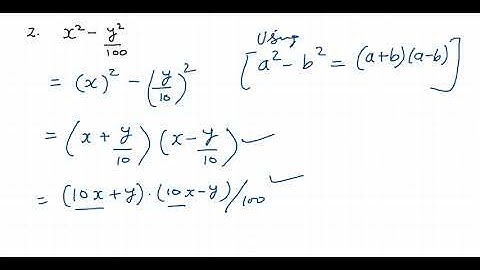 2. x² - y²/100
Using
[a² - b² = (a+b)(a-b)]
= (x)² - (y/10)²
= (x + y/10) (x - y/10) ✓
= (10x + y) · (10x - y)/100 ✓